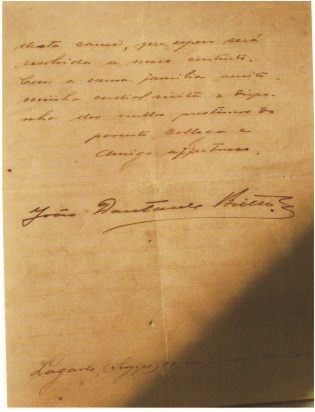 desta causa, que espero será
resolvida a nosso contento.
Com a exma. familia aceite
minha cordial visita e dispo-
nha dos nullos prestimos do
parente, collega e
amigo affectuoso,
João Dantas de Britto
Lagarto (Sergipe)